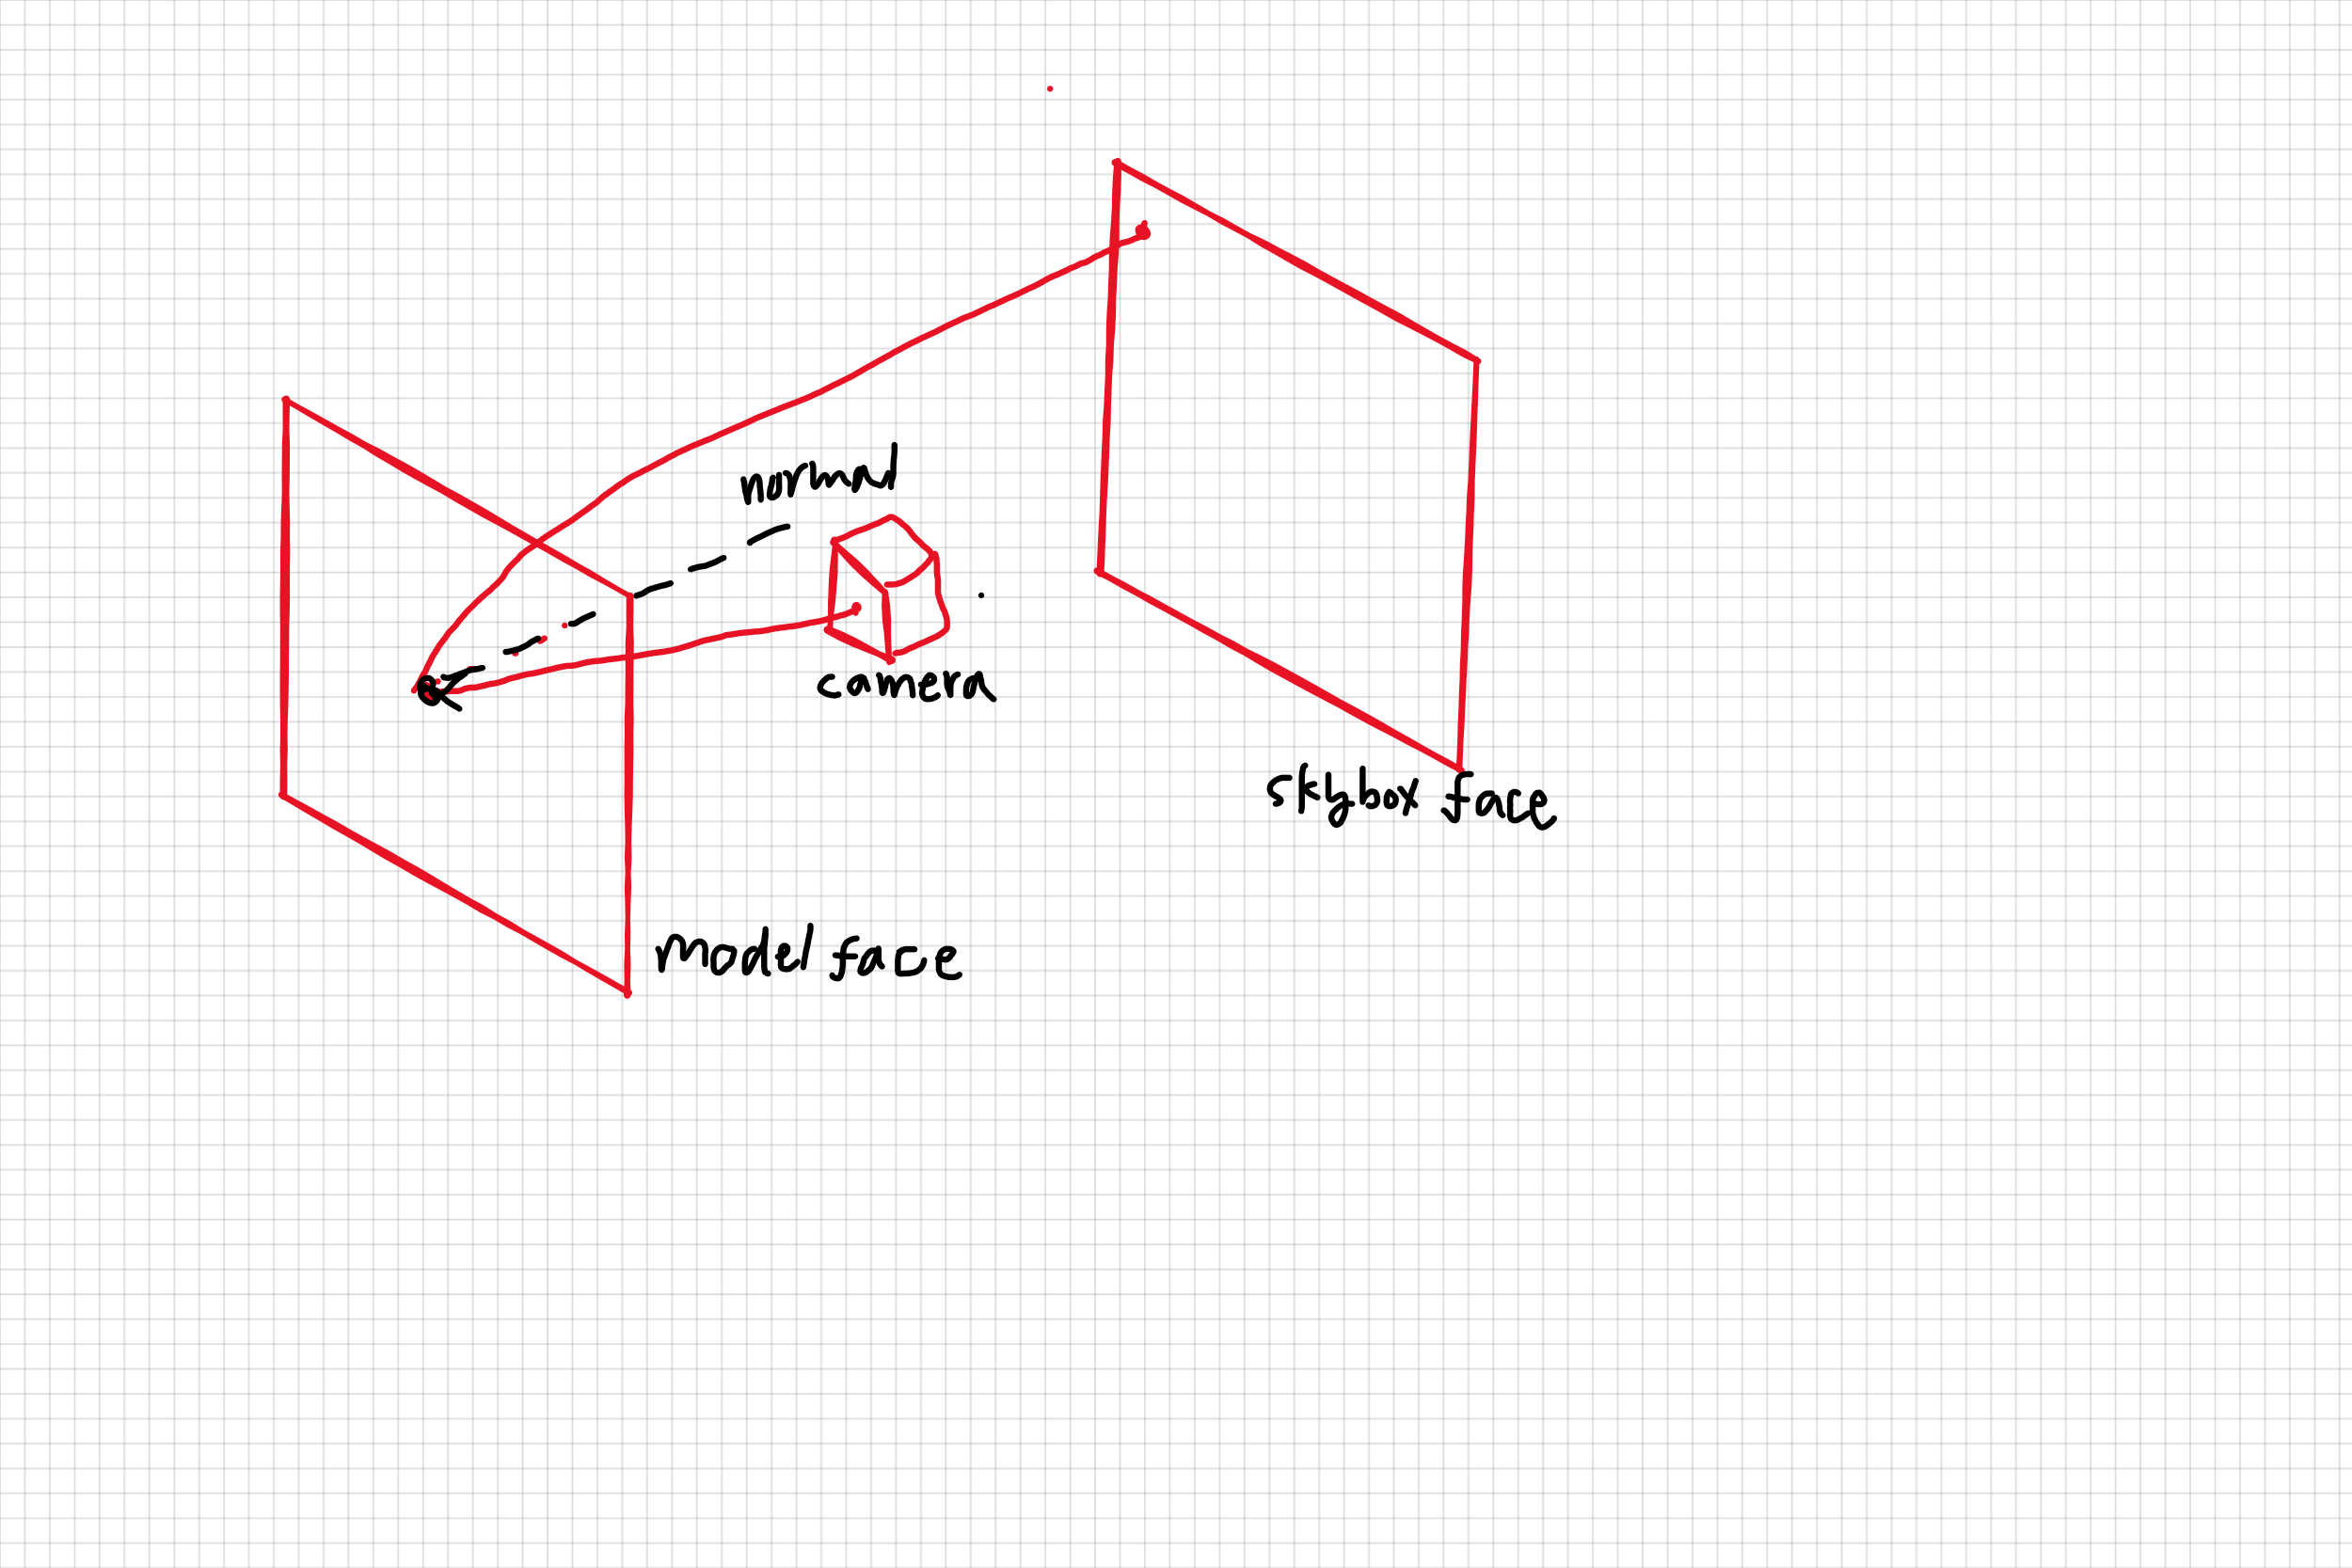 normal
camera
skybox face
model face